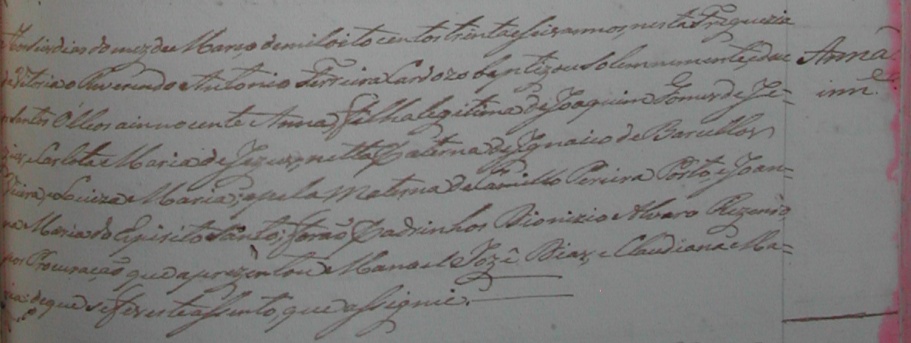 dias do mez de Março de mil oito centos trinta e seis annos, nesta Freguezia
o Reverendo Antonio Ferreira Cardozo baptizou Solemnemente, e deu
Santos Olleos a innocente Anna, Filha legitima de Joaquim Gomes de
e Carlota Maria de Jezus, netta Paterna de Ignacio de Barcellos
e Luiza Maria; e pela Materna de Camillo Pereira Porto, e Joan-
na Maria do Espirito Santo; forão Padrinhos Dionizio Alvaro
por Procuração que aprezentou Manoel Jozé Dias, e Claudiana Ma-
ria: de que se fez este assento, que assignei.
Anna
inn.e